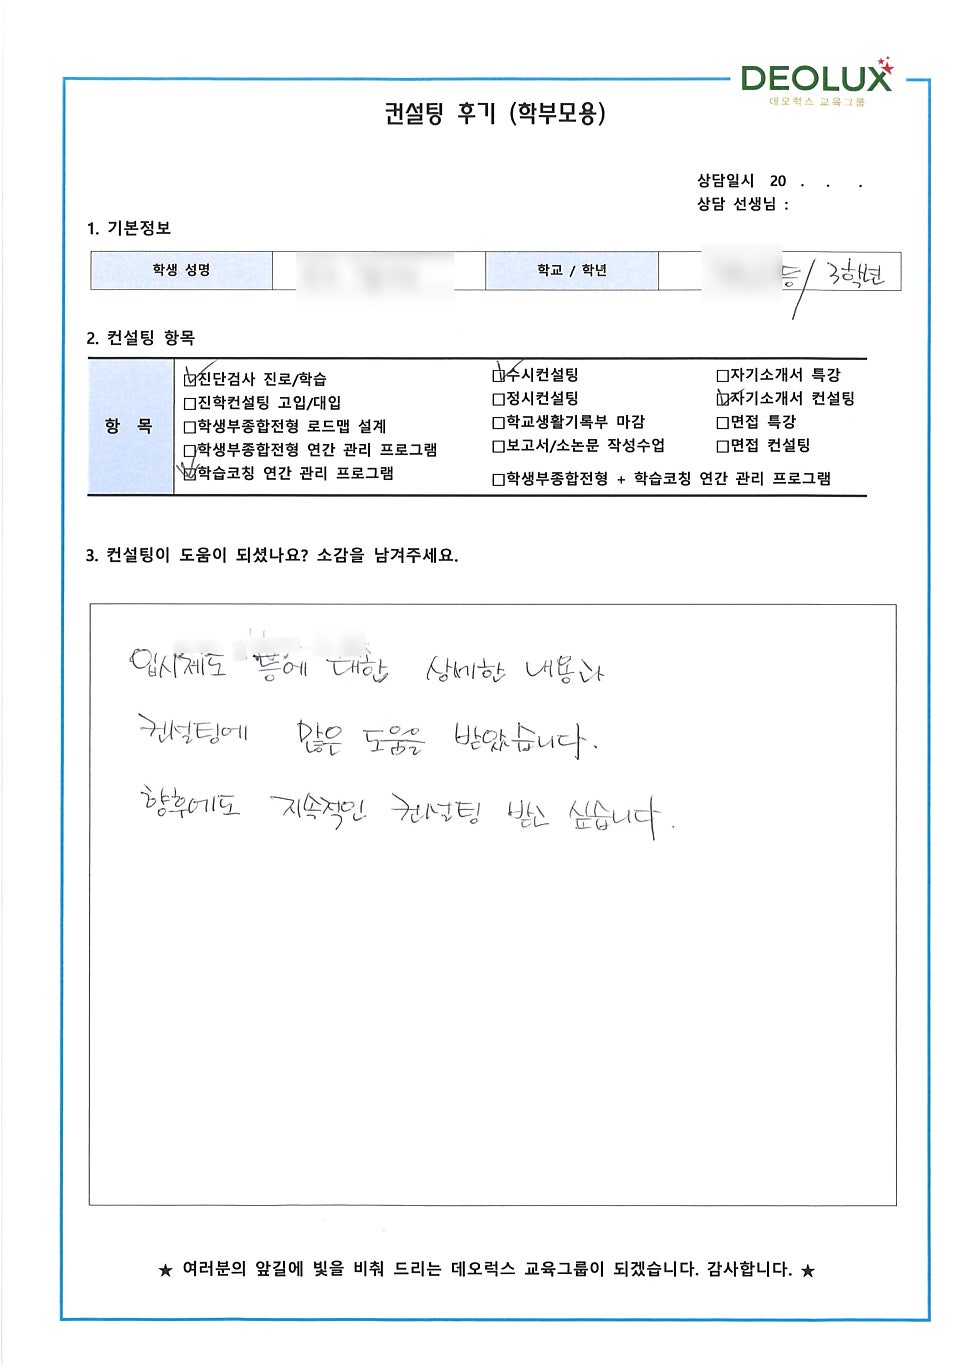 DEOLUX
데오럭스 교육그룹
컨설팅 후기 (학부모용)
상담일시 20 . . .
상담 선생님 :
1. 기본정보
학생 성명
학교 / 학년 등/ 3학년
2. 컨설팅 항목
항 목
☑진단검사 진로/학습
□진학컨설팅 고입/대입
□학생부종합전형 로드맵 설계
□학생부종합전형 연간 관리 프로그램
☑학습코칭 연간 관리 프로그램
☑수시컨설팅
□정시컨설팅
□학교생활기록부 마감
□보고서/소논문 작성수업
□학생부종합전형 + 학습코칭 연간 관리 프로그램
□자기소개서 특강
☑자기소개서 컨설팅
□면접 특강
□면접 컨설팅
3. 컨설팅이 도움이 되셨나요? 소감을 남겨주세요.
입시제도 등에 대한 상세한 내용과
컨설팅에 많은 도움을 받았습니다.
향후에도 지속적인 컨설팅 받고 싶습니다.
★ 여러분의 앞길에 빛을 비춰 드리는 데오럭스 교육그룹이 되겠습니다. 감사합니다. ★